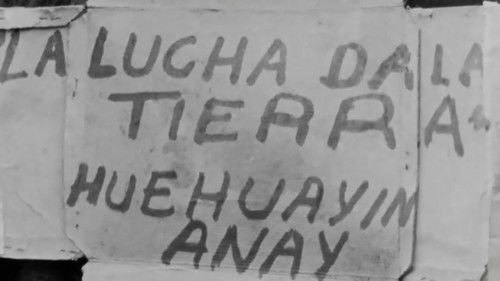 LA LUCHA DA LA
TIERRA A"
HUEHUAYIN
ANAY